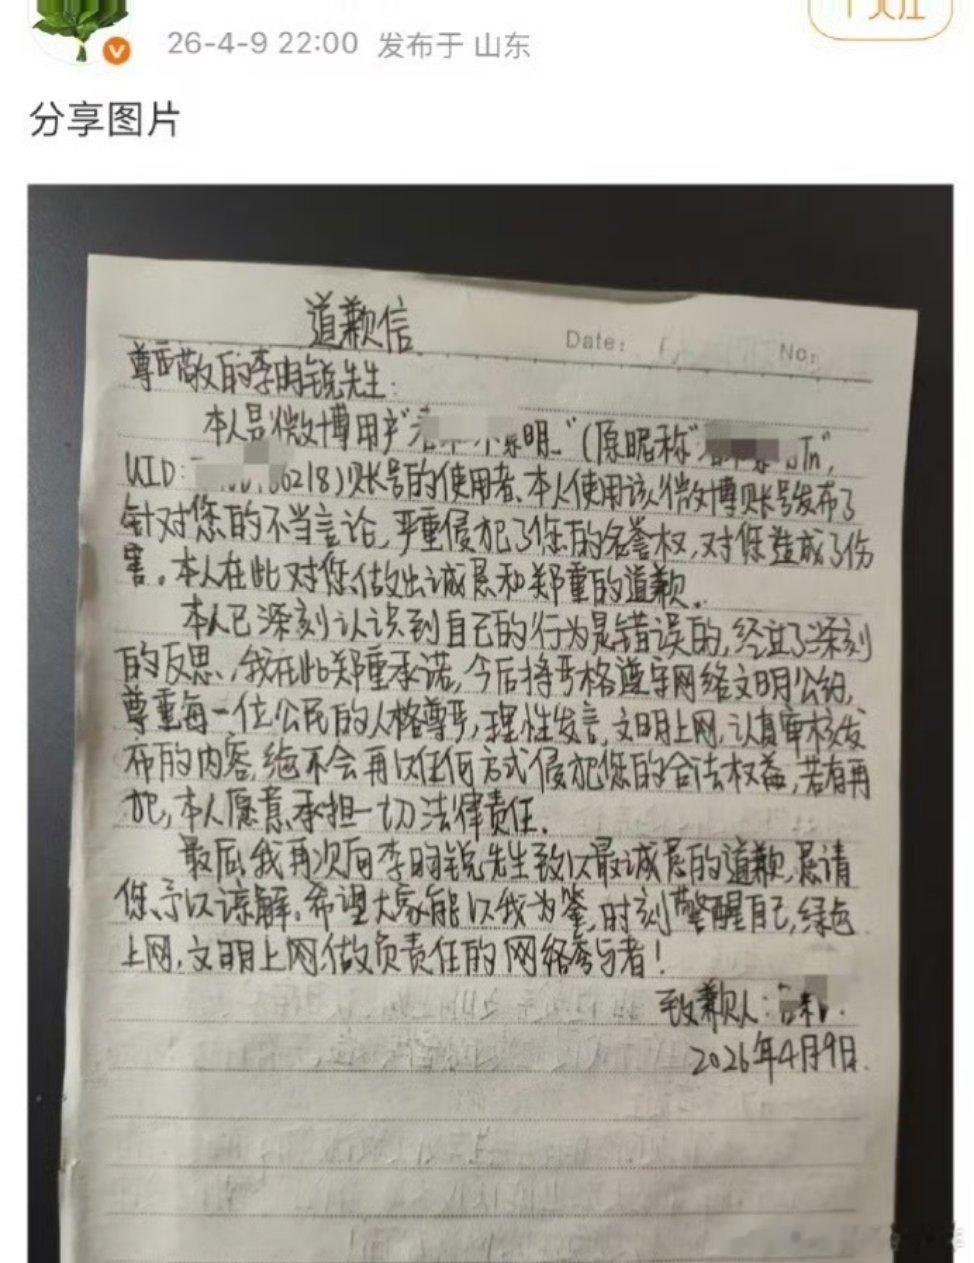 26-4-9 22:00 发布于 山东
分享图片
道歉信
Date:
No:
尊敬的李昀锐先生:
本人是微博用户"黎明"(原昵称"
UID: 6218)账号的使用者、本人使用该微博账号发布了
针对您的不当言论,严重侵犯了您的名誉权,对您造成了伤
害。本人在此对您做出诚恳和郑重的道歉。
本人已深刻认识到自己的行为是错误的,经过了深刻
的反思,我在此郑重承诺,今后将严格遵守网络文明公约,
尊重每一位公民的人格尊严,理性发言,文明上网,认真审核发
布的内容,绝不会再以任何方式侵犯您的合法权益,若有再
犯,本人愿意承担一切法律责任.
最后,我再次向李昀锐先生致以最诚恳的道歉,恳请
您予以谅解。希望大家能以我为鉴,时刻警醒自己,绿色
上网,文明上网,做负责任的网络参与者!
致歉人:
2026年4月9日.